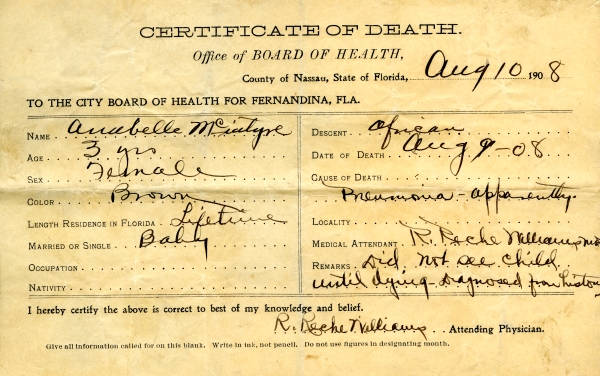 CERTIFICATE OF DEATH.
Office of BOARD OF HEALTH,
County of Nassau, State of Florida, Aug 10 1908
TO THE CITY BOARD OF HEALTH FOR FERNANDINA, FLA.
NAME Anabelle McIntyre
AGE 3 yrs
SEX Female
COLOR Brown
LENGTH RESIDENCE IN FLORIDA Lifetime
MARRIED OR SINGLE Baby
OCCUPATION
NATIVITY
DESCENT African
DATE OF DEATH Aug 9-08
CAUSE OF DEATH
Pneumonia - apparently.
LOCALITY
MEDICAL ATTENDANT R. Roche Williams MD
REMARKS Did not see child
until dying - Diagnosed from history
I hereby certify the above is correct to best of my knowledge and belief.
R. Roche Williams Attending Physician.
Give all information called for on this blank. Write in ink, not pencil. Do not use figures in designating month.